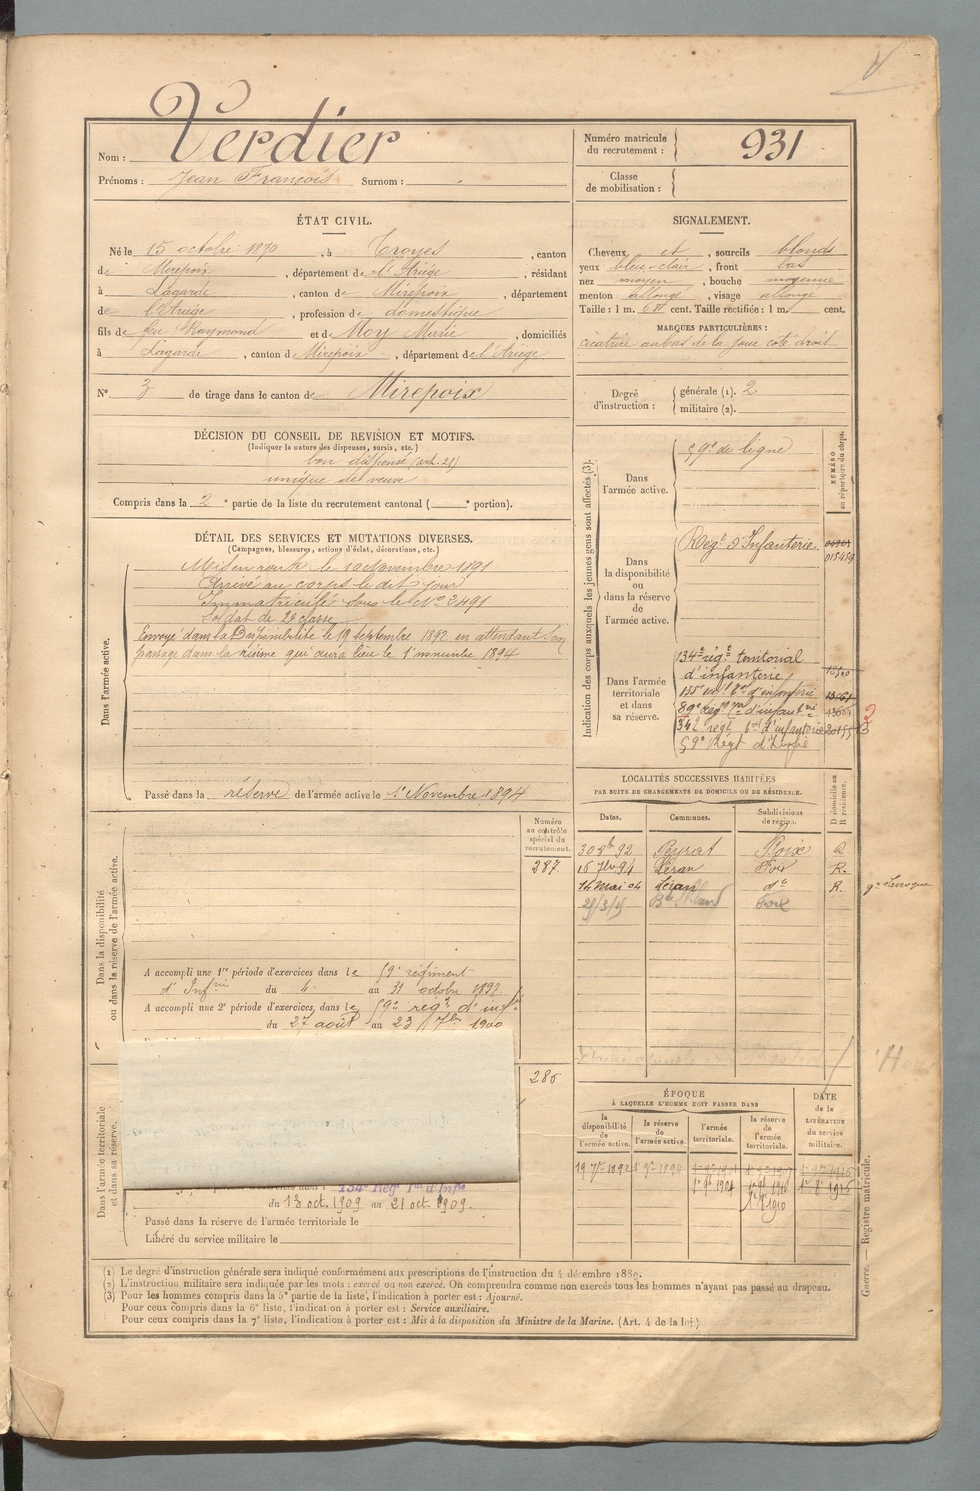 Nom : Verdier
Prénoms : Jean François Surnom :
Numéro matricule du recrutement : 931
Classe de mobilisation :
ÉTAT CIVIL.
Né le 15 octobre 1870, à Troyes, canton
de Mirepoix, département de l'Ariège, résidant
à Lagarde, canton de Mirepoix, département
de l'Ariège, profession de domestique
fils de feu Raymond et de Moy Marie, domiciliés
à Lagarde, canton de Mirepoix, département de l'Ariège
N° 3 de tirage dans le canton de Mirepoix
SIGNALEMENT.
Cheveux et, sourcils blonds
yeux bleu-clair, front bas
nez moyen, bouche moyenne
menton allongé, visage allongé
Taille : 1 m. cent. Taille rectifiée : 1 m. cent.
MARQUES PARTICULIÈRES :
cicatrice au bas de la joue coté droit
Degré d'instruction : générale (1). 2
militaire (2).
DÉCISION DU CONSEIL DE REVISION ET MOTIFS.
(Indiquer la nature des dispenses, sursis, etc.)
bon dispensé (art. 21)
unique de veuve
Compris dans la 2e partie de la liste du recrutement cantonal ( e portion).
DÉTAIL DES SERVICES ET MUTATIONS DIVERSES.
(Campagnes, blessures, actions d'éclat, décorations, etc.)
Dans l'armée active.
Mis en route le 10 novembre 1891
Arrivé au corps le dit jour
Immatriculé sous le N° 3491
Soldat de 2e classe
Envoyé dans la disponibilité le 19 septembre 1892 en attendant son
passage dans la réserve qui aura lieu le 1er novembre 1894
Passé dans la réserve de l'armée active le 1er Novembre 1894
Indication des corps auxquels les jeunes gens sont affectés (3).
NUMÉRO au répertoire du corps.
Dans l'armée active.
59e de ligne
Dans la disponibilité ou dans la réserve de l'armée active.
Regt d'Infanterie
015459
Dans l'armée territoriale et dans sa réserve.
134e régt territorial
d'infanterie
135e d'infanterie
89e régt d'infanterie
d'infanterie
59e Régt d'Infie
LOCALITÉS SUCCESSIVES HABITÉES
PAR SUITE DE CHANGEMENTS DE DOMICILE OU DE RÉSIDENCE.
Dates. Communes. Subdivisions de région. D domicile ou R résidence.
30 8bre 92 Peyrat Foix R
16 7bre 94 Léran Foix R.
14 Mai 04 Léran do R.
Foix
Dans la disponibilité ou dans la réserve de l'armée active.
Numéro au contrôle spécial du recrutement.
287
A accompli une 1re période d'exercices dans le 59e régiment
d'Infrie du 4 au 31 octobre 1897
A accompli une 2e période d'exercices dans le 59e régt d'inf.
du 27 août au 23 7bre 1900
Dans l'armée territoriale et dans sa réserve.
286
134e Régt Tal d'Infie
du 13 oct. 1909 au 21 oct. 1909.
Passé dans la réserve de l'armée territoriale le
Libéré du service militaire le
ÉPOQUE
À LAQUELLE L'HOMME DOIT PASSER DANS
la disponibilité de l'armée active.
la réserve de l'armée active.
l'armée territoriale.
la réserve de l'armée territoriale.
DATE de la LIBÉRATION du service militaire.
19 7bre 1892 1er 9bre 1894
Guerre. — Registre matricule.
(1) Le degré d'instruction générale sera indiqué conformément aux prescriptions de l'instruction du 4 décembre 1889.
(2) L'instruction militaire sera indiquée par les mots : exercé ou non exercé. On comprendra comme non exercés tous les hommes n'ayant pas passé au drapeau.
(3) Pour les hommes compris dans la 5e partie de la liste, l'indication à porter est : Ajourné.
Pour ceux compris dans la 6e liste, l'indication à porter est : Service auxiliaire.
Pour ceux compris dans la 7e liste, l'indication à porter est : Mis à la disposition du Ministre de la Marine. (Art. 4 de la loi.)